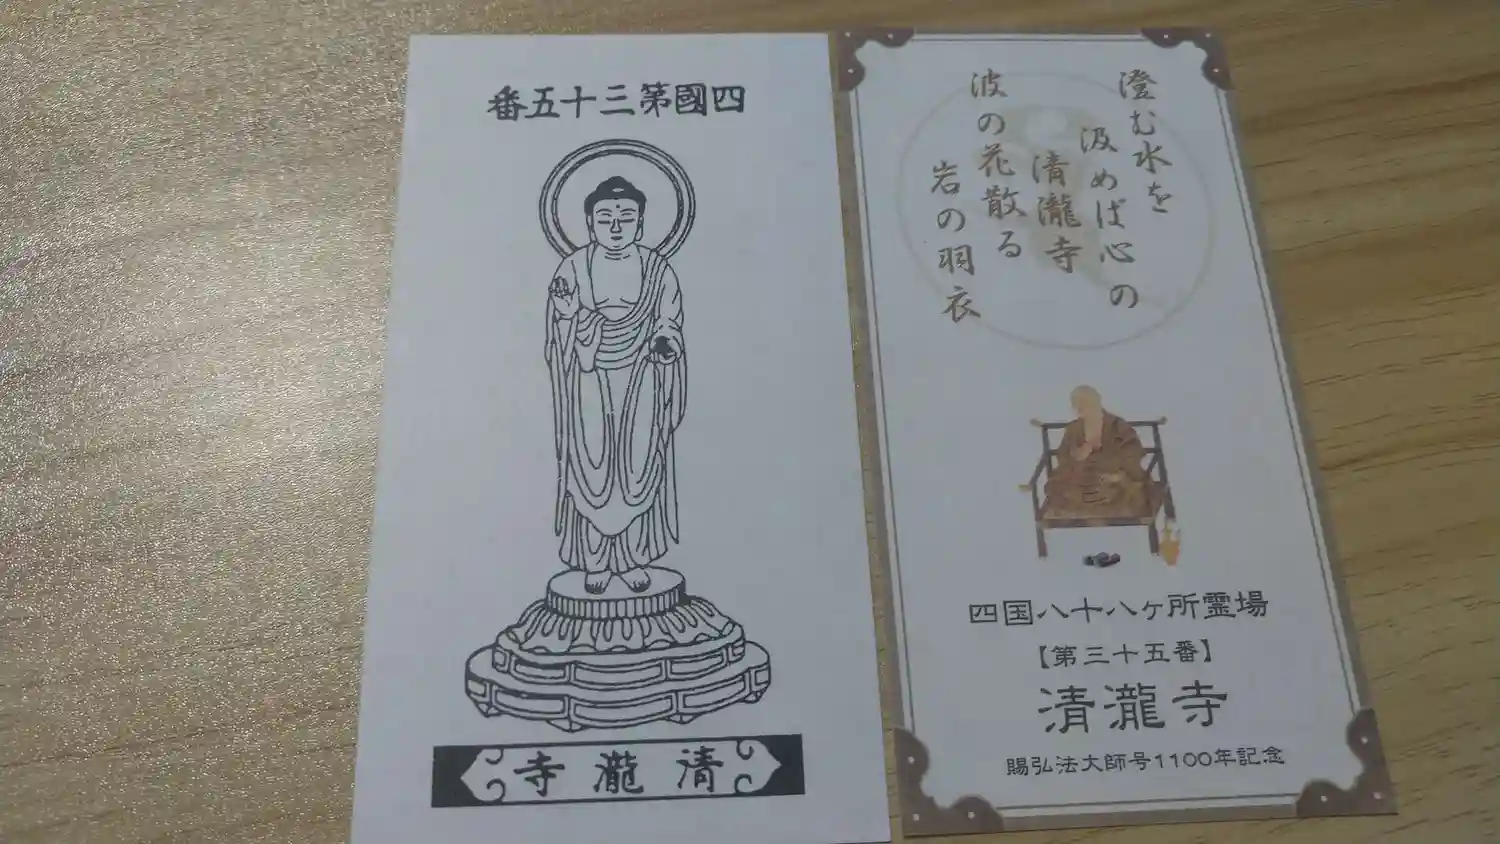 四國第三十五番
清瀧寺
澄む水を
汲めば心の
清瀧寺
波の花散る
岩の羽衣
四国八十八ヶ所霊場
【第三十五番】
清瀧寺
賜弘法大師号1100年記念